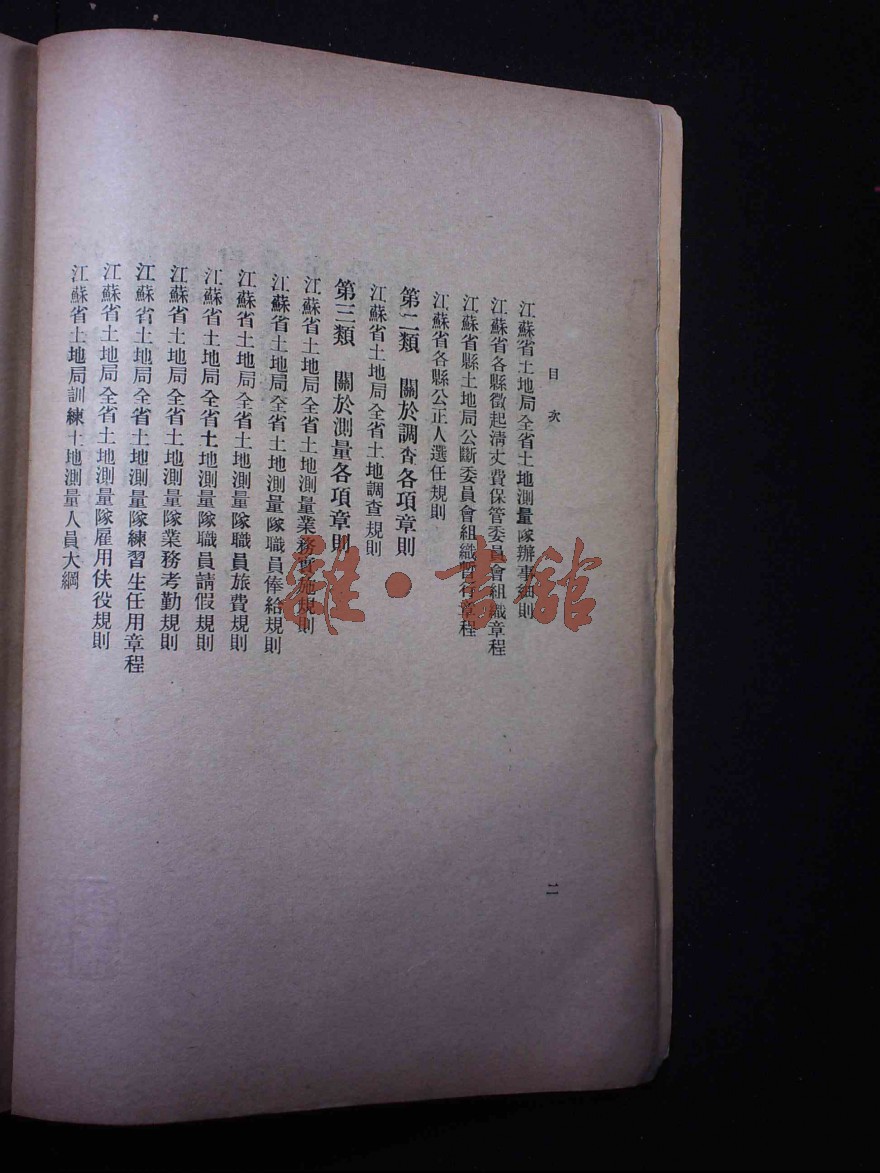 目次
江蘇省土地局全省土地測量隊辦事細則
江蘇省各縣徵起清丈費保管委員會組織章程
江蘇省縣土地局公斷委員會組織暫行章程
江蘇省各縣公正人選任規則
第二類　關於調查各項章則
江蘇省土地局全省土地調查規則
第三類　關於測量各項章則
江蘇省土地局全省土地測量業務實施規則
江蘇省土地局全省土地測量隊職員俸給規則
江蘇省土地局全省土地測量隊職員旅費規則
江蘇省土地局全省土地測量隊職員請假規則
江蘇省土地局全省土地測量隊業務考勤規則
江蘇省土地局全省土地測量隊練習生任用章程
江蘇省土地局全省土地測量隊雇用伕役規則
江蘇省土地局訓練土地測量人員大綱
二
雜·書館